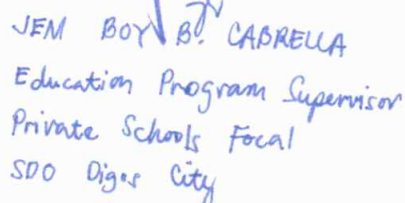 JEM BOY B. CABRELLA
Education Program Supervisor
Private Schools Focal
SDO Digos City